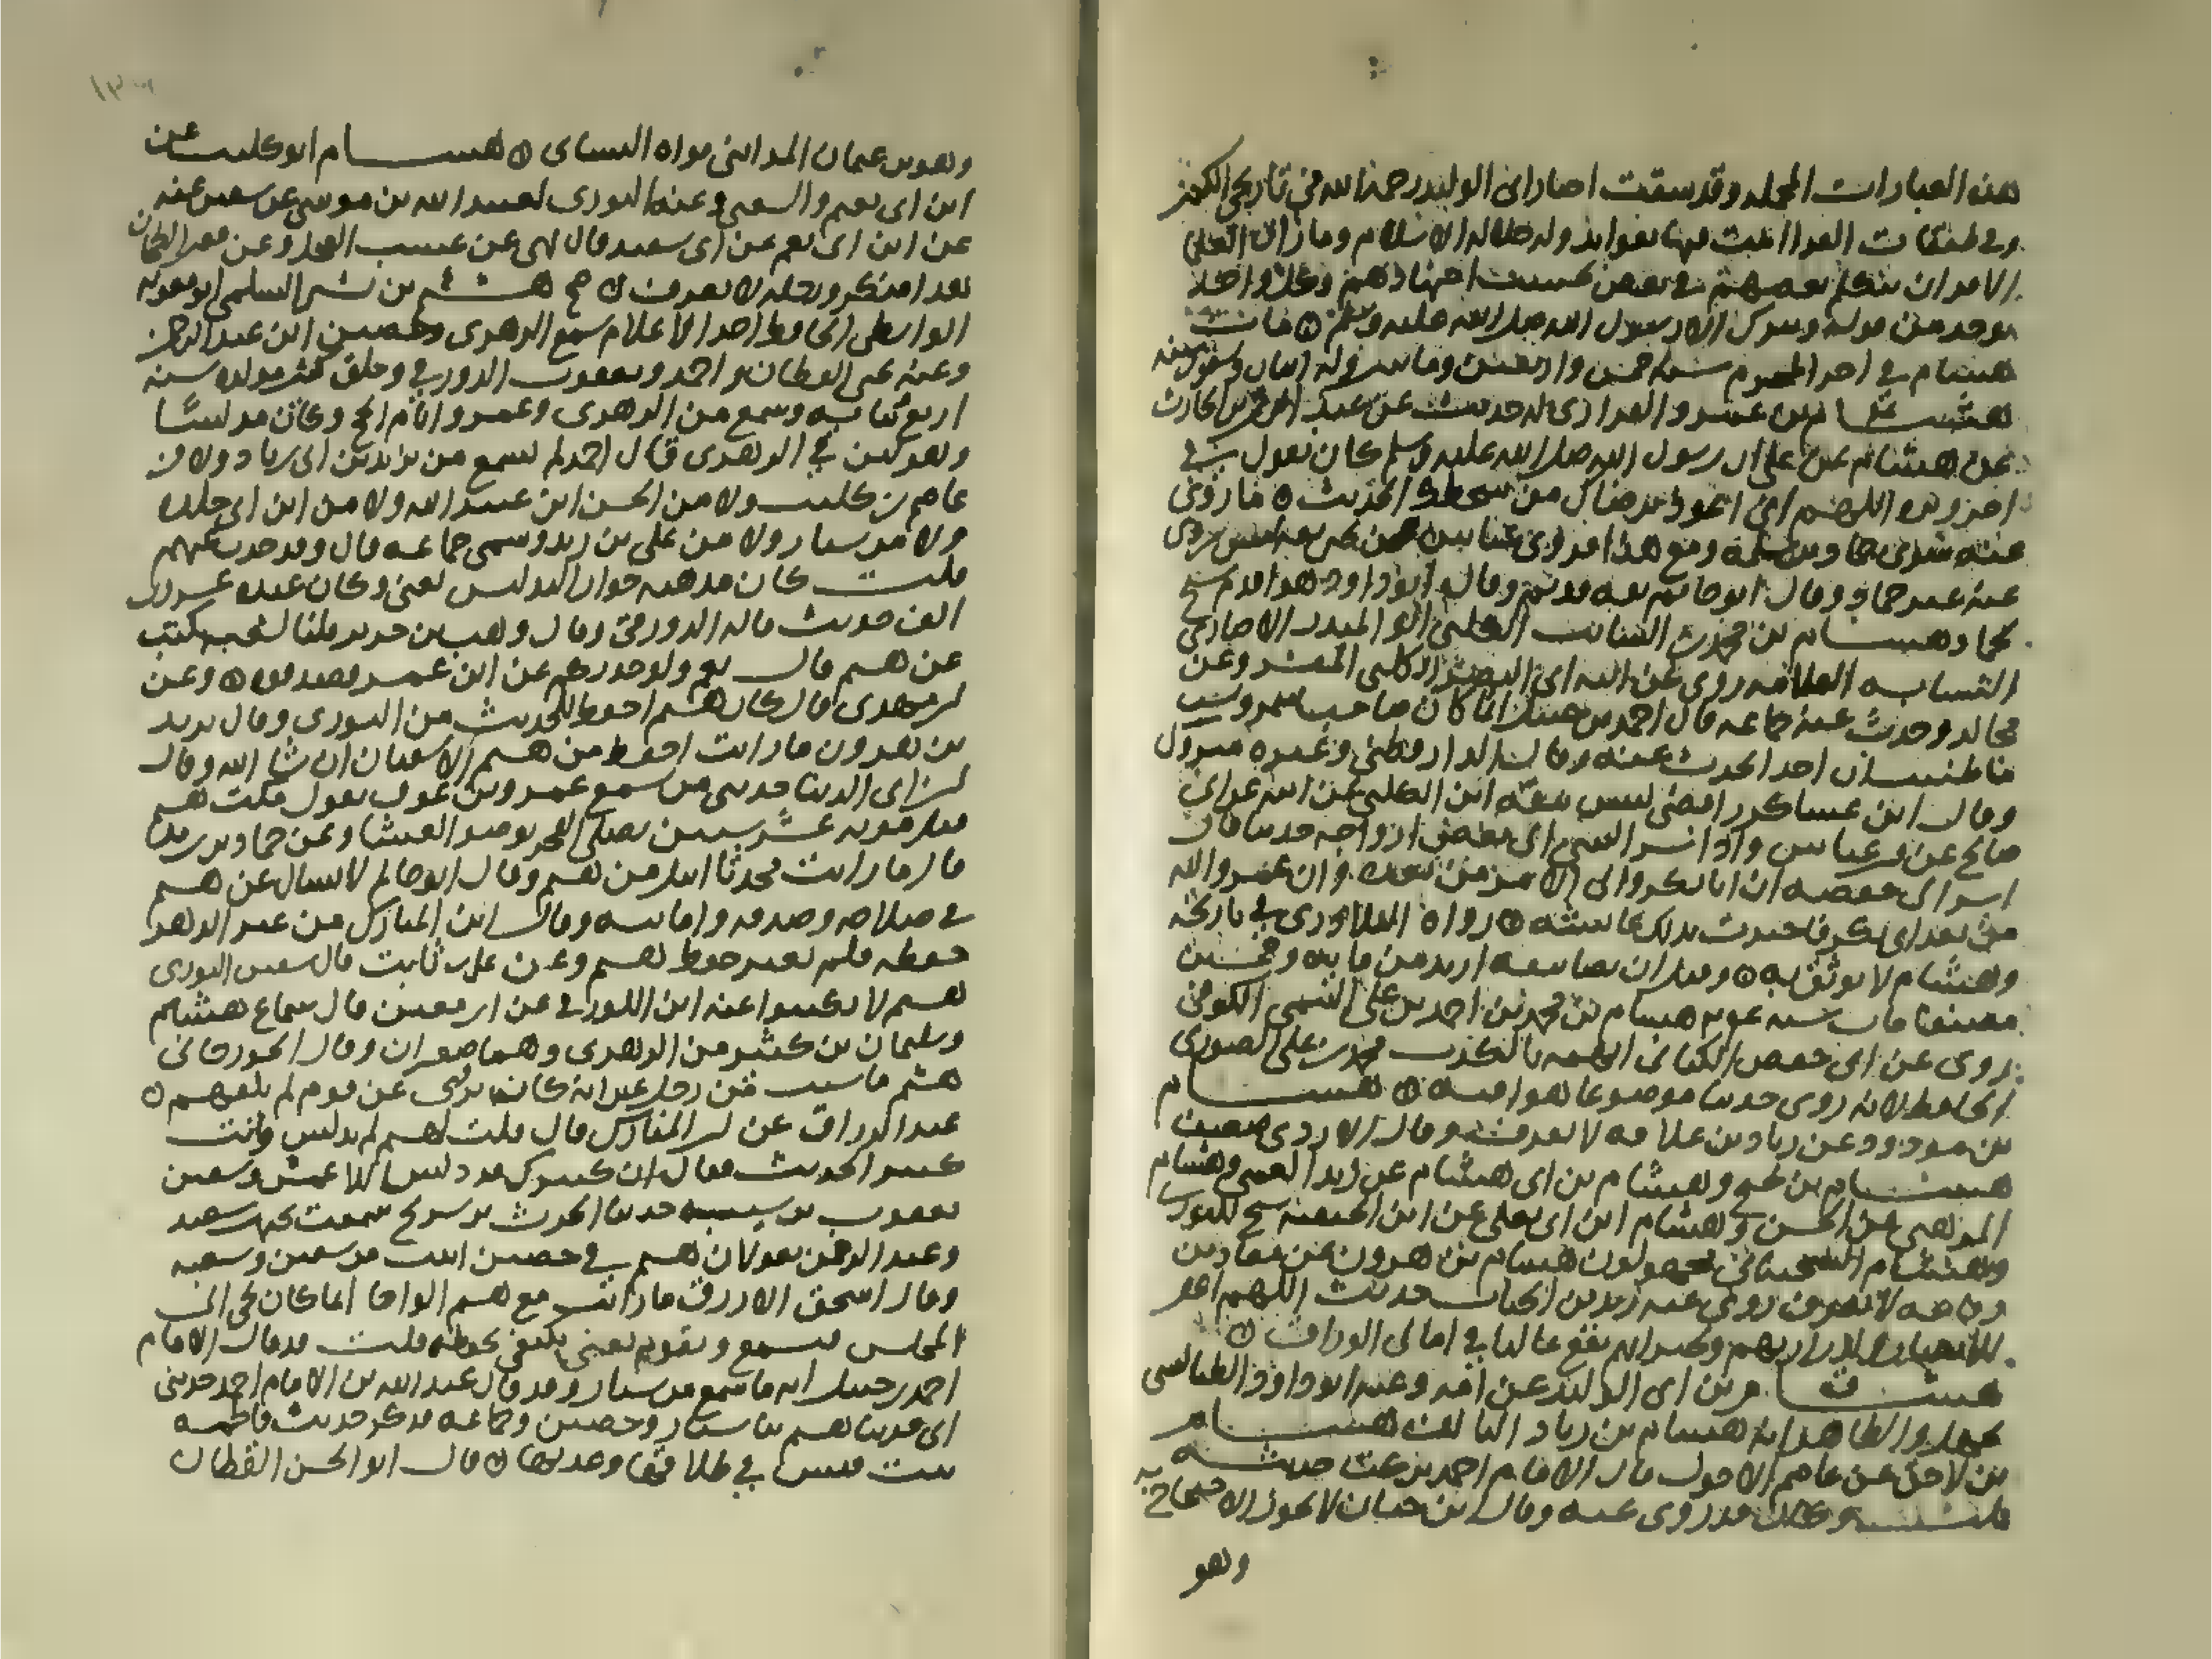 هذه العبارات المجله وقد سقت اخبار ابى الوليد رحمه الله في تاريخي الكبير
وفي طبقات القراء اتيت فيها بفوايد وله جلاله في الاسلام وما زال العلماء
الاقران يتكلم بعضهم في بعض بحسب اجتهادهم وكل واحد
يوخذ من قوله ويترك الا رسول الله صلى الله عليه وسلم ۞ مات
هشام في اخر المحرم سنة خمس واربعين ومايتين وله اثنان وتسعون سنه
هشام بن عمرو الفزارى له حديث عن عبد الرحمن بن الحارث
بن هشام عن على ان رسول الله صلى الله عليه وسلم كان يقول في
اخر وتره اللهم اني اعوذ برضاك من سخطك الحديث ۞ ما روى
عنه سوى حماد بن سلمة ومع هذا فروى عباس عن يحيى بن معين ليس يروى
عنه غير حماد وقال ابو حاتم ثقه قديم وقال ابو داود هو اقدم شيخ
لحماد هشام بن محمد بن السائب الكلبى ابو المنذر الاخبارى
النسابه العلامه روى عن ابيه ابى النضر الكلبى المفسر وعن
مجالد وحدث عنه جماعه قال احمد بن حنبل انما كان صاحب سمر ونسب
ما ظننت ان احدا يحدث عنه وقال الدارقطنى وغيره متروك
وقال ابن عساكر رافضى ليس بثقه ابن الكلبى عن ابيه عن ابى
صالح عن بن عباس واذ اسر النبى الى بعض ازواجه حديثا قال
اسر الى حفصه ان ابا بكر والى الامر من بعده وان عمر واليه
من بعد ابى بكر فاخبرت بذلك عايشه ۞ رواه البلاذرى في تاريخه
وهشام لا يوثق به ۞ وقيل ان تصانيفه ازيد من مايه وخمسين
مصنفا مات سنه هشام بن محمد بن احمد بن على التيمى الكوفى
روى عن ابى حفص الكتانى اتهمه بالكذب محمد بن على الصورى
الحافظ لانه روى حديثا موضوعا هو افته ۞ هشام
بن مودود عن زياد بن علاقه لا يعرف وقال الازدى ضعيف
هشام بن نجيح وهشام بن ابى هشام عن زيد العمى وهشام
المرهبى عن الحسن وهشام ابن ابى يعلى عن ابن الحنفيه شيخ للثورى
وهشام السختيانى مجهولون هشام بن هرون عن معاذ بن
رفاعه لا يعرف روى عنه زيد بن الحباب حديث اللهم اغفر
للانصار ولذراريهم ولجيرانهم يقع عاليا في امالى الوراق ۞
هشام بن ابى الوليد عن امه وعنه ابو داود الطيالسى
مجهول والظاهر انه هشام بن زياد التالف هشام
بن لاحق عن عاصم الاحول قال الامام احمد تركت حديثه
قلت وكان قد روى عنه وقال ابن حبان لا يجوز الاحتجاج به
وهو
وهو بن عثمان المداينى قواه النساى ۞ هشام ابو كليب عن
ابن ابى نعم والشعبى وعنه الثورى لعبيد الله بن موسى عن سفين عنه
عن ابن ابى نعم عن ابى سعيد قال نهى عن عسب الفحل وعن قفيز الطحان
هذا منكر وراويه لا يعرف ۞ صح هشيم بن بشير السلمى ابو معويه
الواسطى الحافظ احد الاعلام سمع الزهرى وحصين ابن عبد الرحمن
وعنه يحيى القطان واحمد ويعقوب الدورقى وخلق كثير مولده سنه
اربع ومايه وسمع من الزهرى وعمرو ايام الحج وكان مدلسا
وهو لين في الزهرى قال احمد لم يسمع من يزيد بن ابى زياد ولا من
عاصم بن كليب ولا من الحسن ابن عبيد الله ولا من ابن ابى خلده
ولا من سيار ولا من على بن زيد وسمى جماعه قال وقد حدث عنهم
قلت كان مذهبه جواز التدليس بعن وكان عنده عشرون
الف حديث قاله الدورقى وقال وهب بن جرير قلنا لشعبه نكتب
عن هشيم قال نعم ولو حدثكم عن ابن عمر فصدقوه ۞ وعن
بن مهدى قال كان هشيم احفظ للحديث من الثورى وقال يزيد
بن هرون ما رايت احفظ من هشيم الا سفيان ان شا الله وقال
بن ابى الدنيا حدثنى من سمع عمرو بن عون يقول مكث هشيم
قبل موته عشر سنين يصلى الفجر بوضوء العشا وعن حماد بن زيد
قال ما رايت محدثا انبل من هشيم وقال ابو حاتم لا يسال عن هشيم
في صلاحه وصدقه وامانته وقال ابن المبارك من غير الدهر
حفظه فلم يغير حفظ هشيم وعن على بن ثابت قال سفين الثورى
هشيم لا تكتبوا عنه ابن الدورقى عن ابن معين قال سماع هشيم
وسليمان بن كثير من الزهرى وهما صغيران وقال الجوزجانى
هشيم ما شيت من رجل غير انه كان يروى عن قوم لم يلقهم ۞
عبد الرزاق عن بن المبارك قال قلت لهشيم لم تدلس وانت
كثير الحديث فقال ان كبيريك قد دلسا الاعمش وسفين
يعقوب بن شيبه حدثنا الحرث بن سريج سمعت يحيى بن سعيد
وعبد الرحمن يقولان هشيم في حصين اثبت من سفين وشعبه
وقال اسحق الازرق ما رايت مع هشيم الواحا انما كان يجى الى
المجلس يسمع ويقوم يعنى يكتفى بحفظه قلت قد قال الامام
احمد بن حنبل انه ما سمع من سيار وقد قال عبد الله بن الامام احمد حدثنى
ابى حدثنا هشيم ثنا سيار وحصين وجماعه فذكر حديث فاطمه
بنت قيس في طلاقها وعدتها ۞ قال ابو الحسن القطان